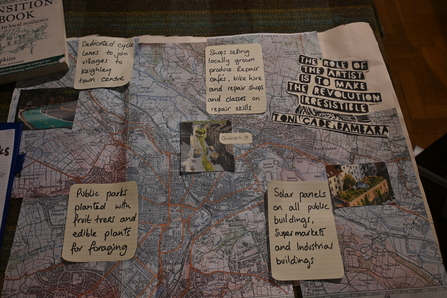 NSITION
BOOK
to local resilience
HOPKINS
Dedicated cycle
lanes to join
villages to
Keighley
town centre
Shops selling
locally grown
produce. Repair
cafes, bike hire
and repair shops
and classes on
repair skills
THE ROLE OF
THE ARTIST
IS TO MAKE
THE REVOLUTION
IRRESISTIBLE
TONI CADE BAMBARA
Public parks
planted with
fruit trees and
edible plants
for foraging
Solar panels
on all public
buildings,
Supermarkets
and Industrial
buildings